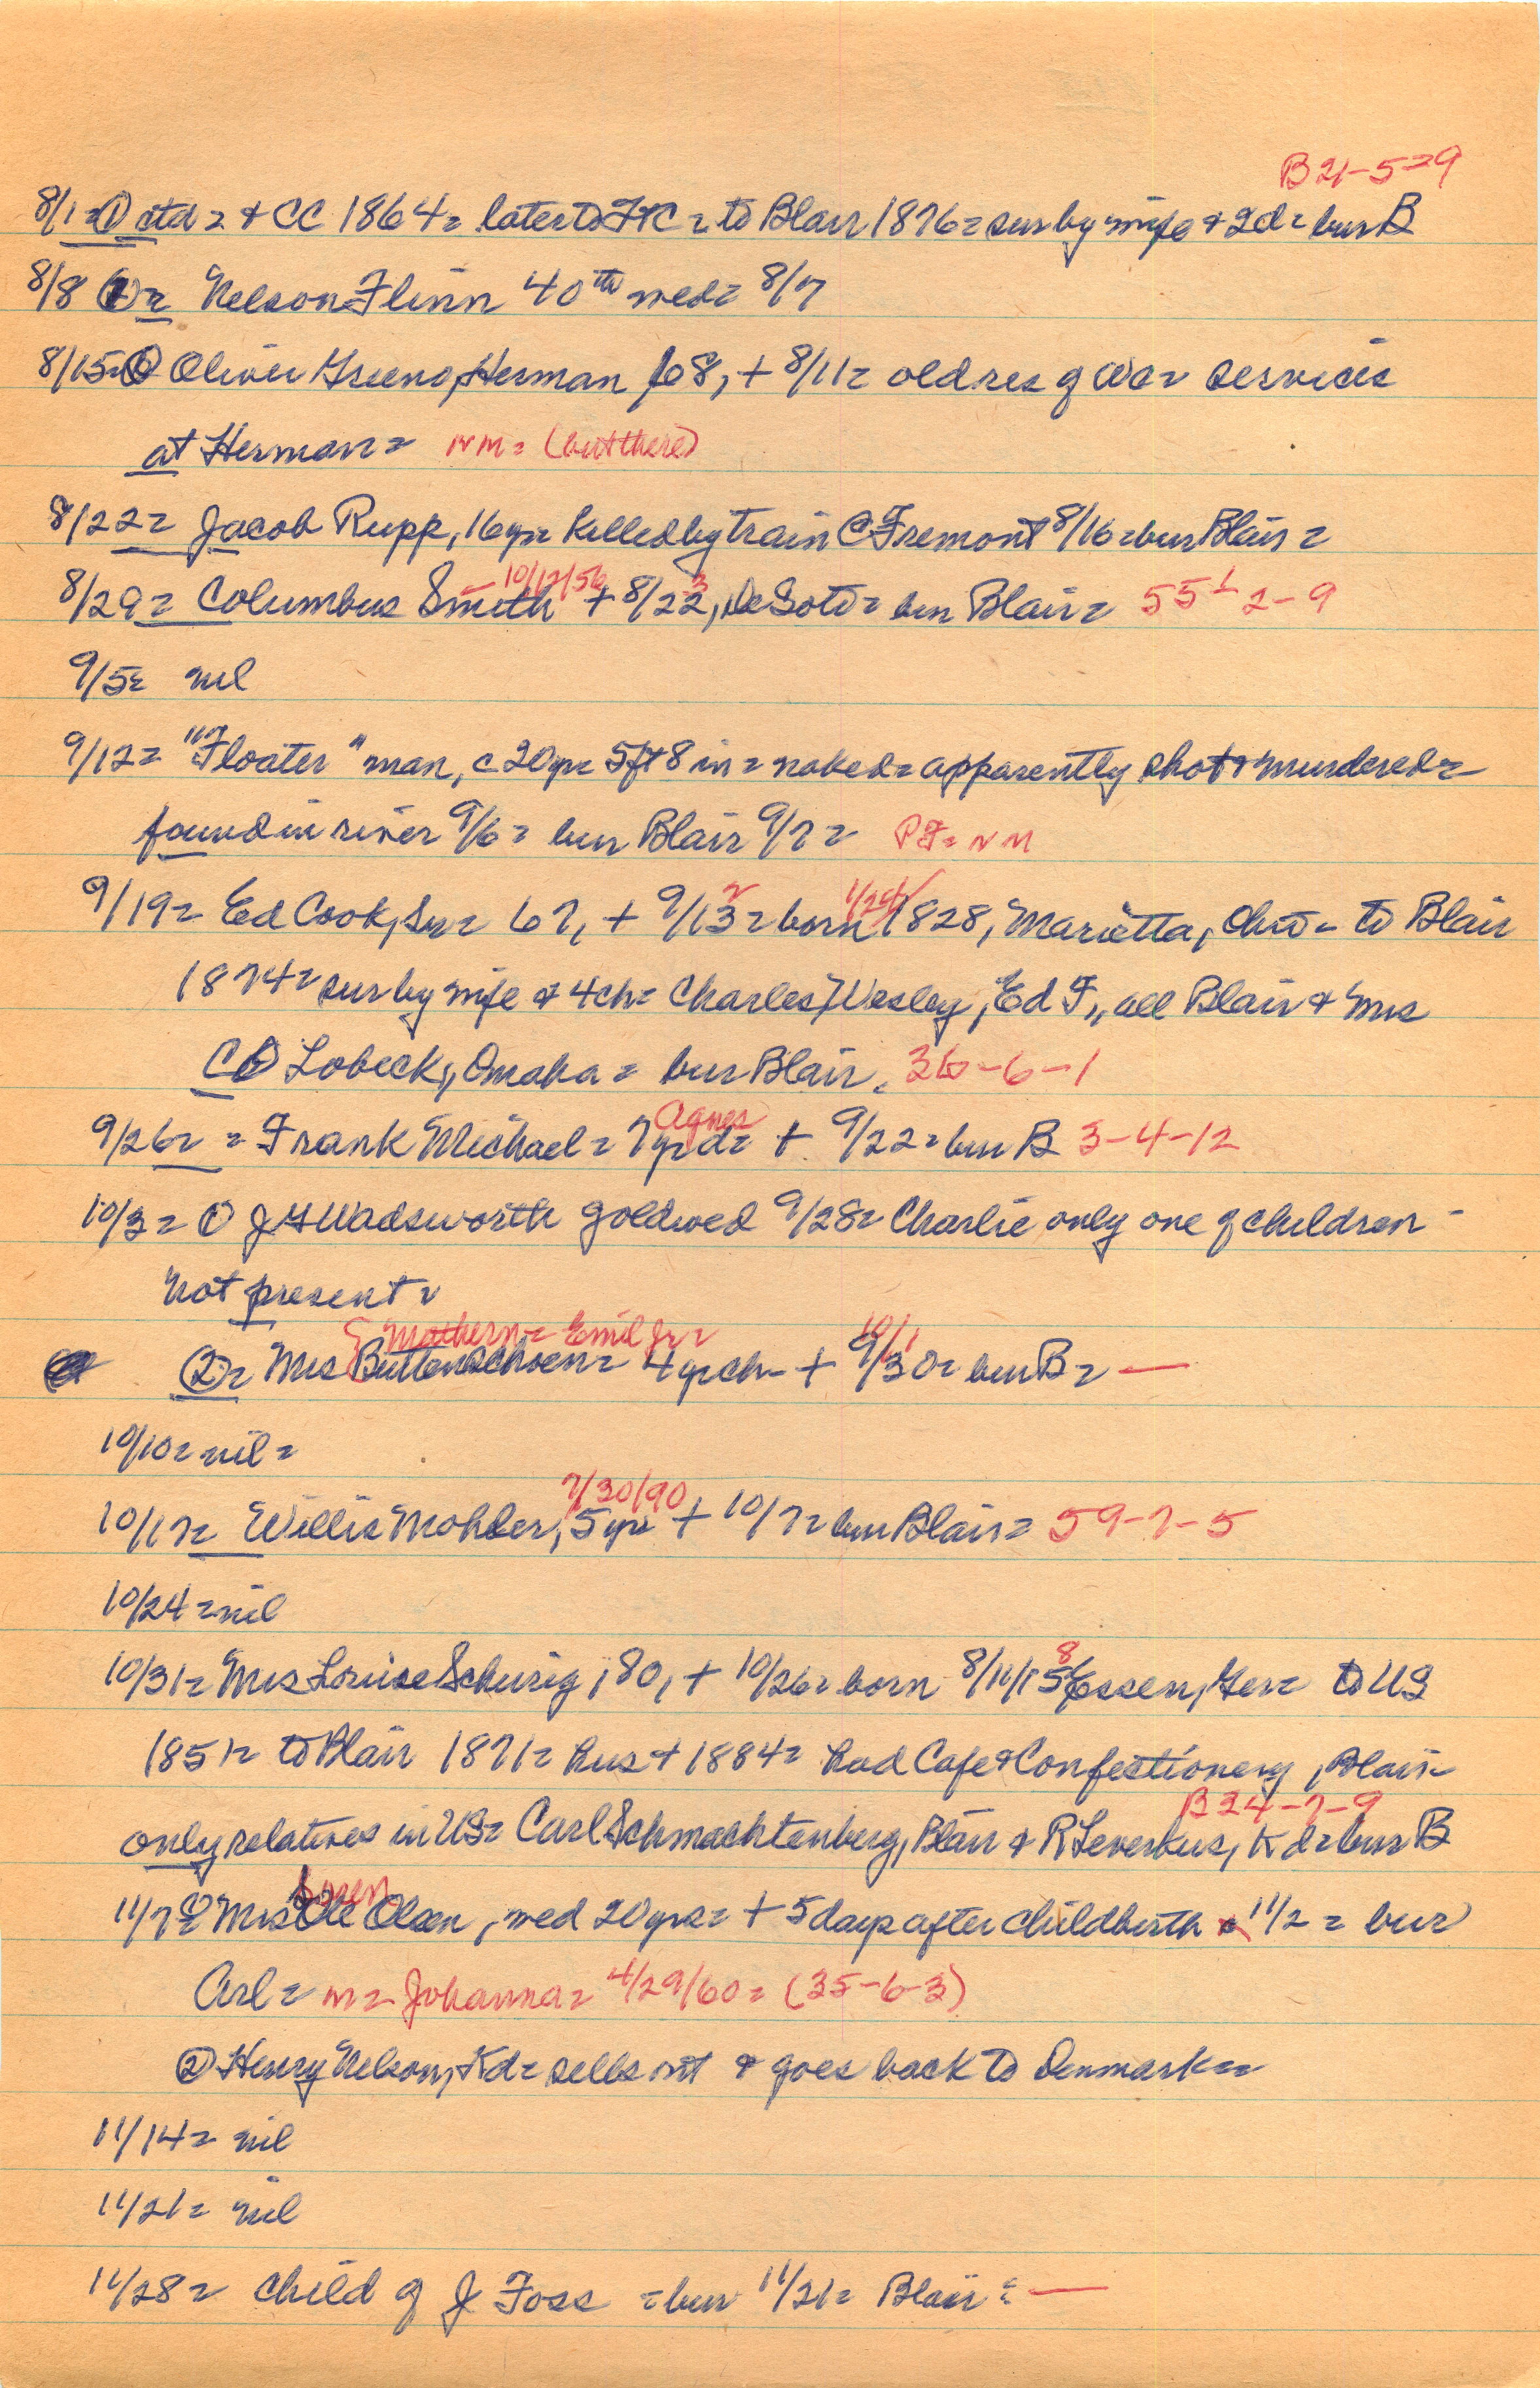 B 21-5-9
8/1= ① ctd = + CC 1864= later to FtC = to Blair 1876= sur by wife + 2d = bur B
8/8 ①= Nelson Flinn 40th wed= 8/7
8/15= Oliver Greeno, Herman, 68, + 8/11= old res of WC= services
at Herman= NM= (but there)
8/22= Jacob Rupp, 16yr= killed by train @ Fremont 8/16= bur Blair=
10/12/56 3
8/29= Columbus Smith + 8/22, DeSoto= bur Blair= 55-2-9
9/5= nil
9/12= "Floater" man, c 20yr= 5ft 8 in= naked= apparently shot + murdered=
found in river 9/6= bur Blair 9/7= PF= NM
2 1/24/
9/19= Ed Cook, Sr= 67, + 9/13= born 1828, Marietta, Ohio= to Blair
1874= sur by wife + 4ch= Charles, Wesley, Ed F., all Blair + Mrs
CO Lobeck, Omaha= bur Blair. 36-6-1
Agnes
9/26= = Frank Michael= 7yr d= + 9/22= bur B 3-4-12
10/3= ① JG Wadsworth gold wed 9/28= Charlie only one of children -
not present=
Emil Jr= 10/1
②= Mrs Buttenschoen= 4yr ch- + 9/30= bur B= —
10/10= nil=
7/30/90
10/17= Willis Mohler, 5yr= + 10/7= bur Blair= 59-7-5
10/24= nil
8
10/31= Mrs Louise Scheurig, 80, + 10/26= born 8/11/15 Essen, Ger= to US
1851= to Blair 1871= hus + 1884= had Cafe + Confectionery, Blair=
B 24-7-9
only relatives in US= Carl Schmachtenberg, Blair + R Leverkus, Kd= bur B
Soren
11/7= ① Mrs Ole Olsen, wed 20yrs= + 5 days after childbirth 11/2= bur
Arl= m= Johanna= 4/29/60= (35-6-3)
② Henry Nelson, Kd= sells out + goes back to Denmark=
11/14= nil
11/21= nil
11/28= child of J Foss = bur 11/21= Blair= —